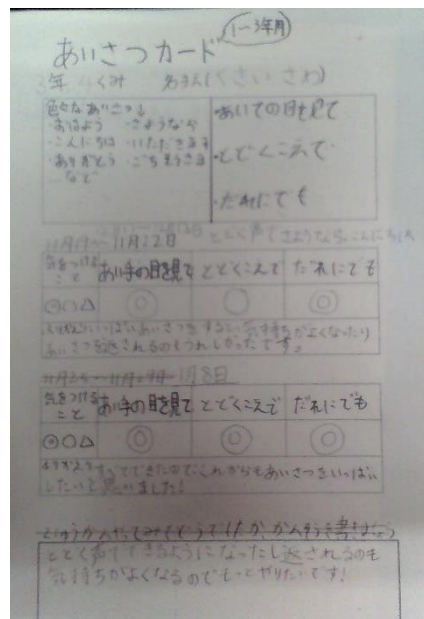 1〜3年用
あいさつカード
3年 くみ
色々なあいさつ↓
・おはよう ・さようなら
・こんにちは ・いただきます
・ありがとう ・ごちそうさま
…など
・あいての目を見て
・とどくこえで
・だれにでも
とどく声でさようなら、こんにちは
11月12日
気をつけること あい手の目を見て とどくこえで だれにでも
◎○△ ◎ ○ ◎
いっぱいあいさつをすると気持ちがよくなったり
あいさつを返されるのもうれしかったです。
1月8日
気をつけること あい手の目を見て とどくこえで だれにでも
◎○△ ◎ ◎ ◎
ふりかえり すべてできたのでこれからもあいさつをいっぱい
したいと思いました!
とどく声でできるようになったし返されるのも
気持ちがよくなるのでもっとやりたいです!